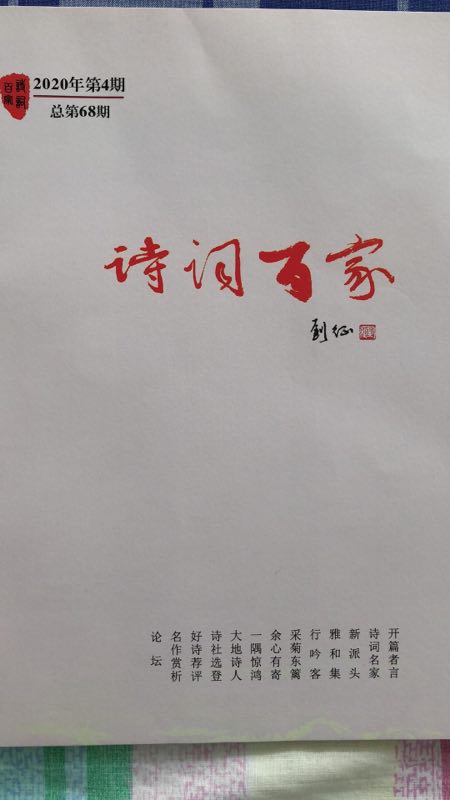 诗词百家
2020年第4期
总第68期
诗词百家
刘征
开篇者言
诗词名家
新派头
雅和集
行吟客
采菊东篱
余心有寄
一隅惊鸿
大地诗人
诗社选登
好诗荐评
名作赏析
论坛